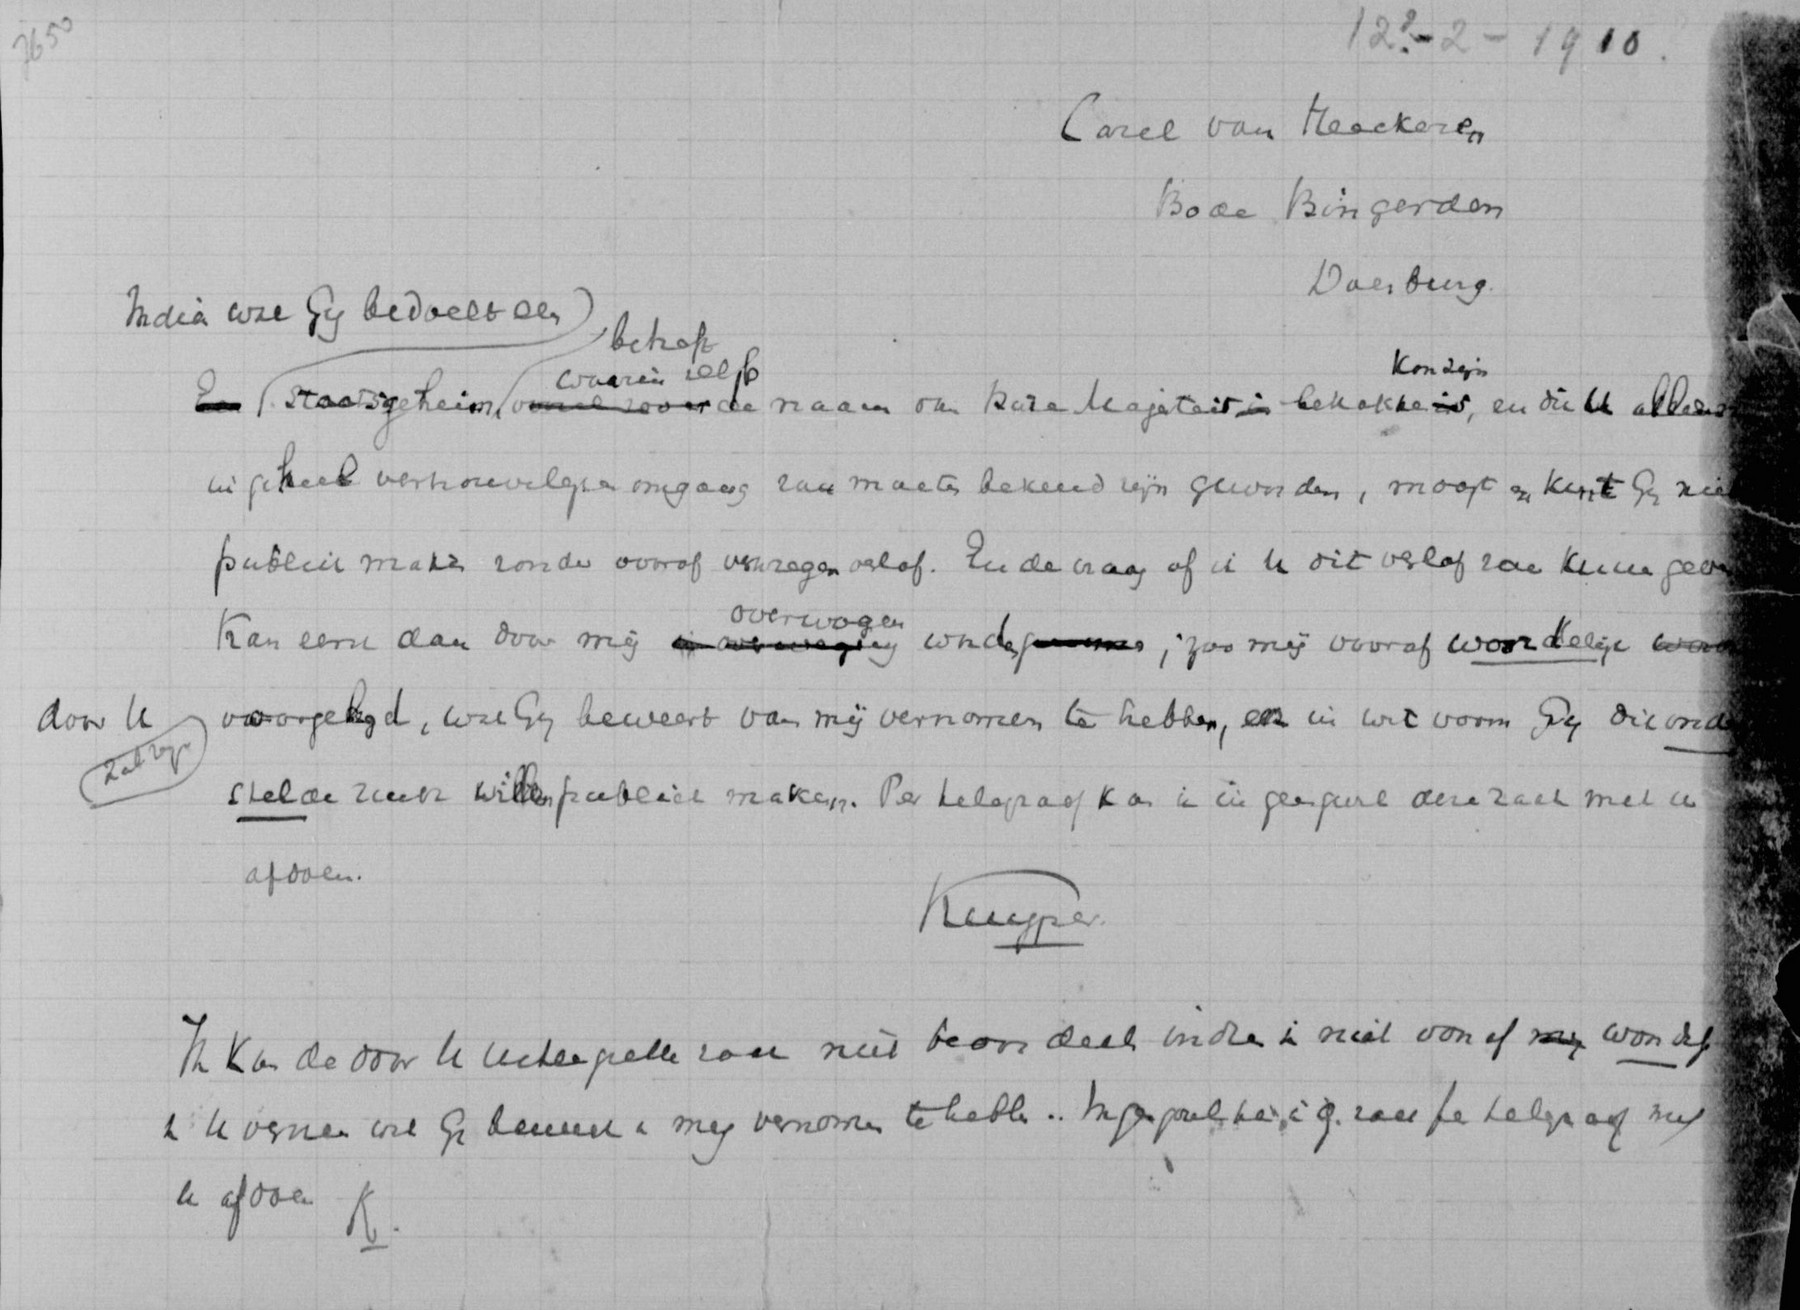 7650
12?-2-1910.
Carel van Heeckeren
Bode Bingerden
Doesburg.
Indien wat Gij bedoelt een
betreft
waarin zelfs
Een staatsgeheim, de naam van Hare Majesteit is betrokken is, en die U alleen
kon zijn
in geheel vertrouwelijken omgang zou moeten bekend zijn geworden, moogt en kunt Gij niet
publiek maken zonder vooraf verkregen verlof. En de vraag of ik U dit verlof zou kunnen geven
overwogen
kan eerst dan door mij in overweging worden genomen, zoo mij vooraf woordelijk
door U
zal zijn
voorgelegd, wat Gij beweert van mij vernomen te hebben, en in wat vorm Gij dit onder-
stelde zoudt willen publiek maken. Per telegraaf kan ik in geen geval deze zaak met U
afdoen.
Kuyper.
Ik kan de door U zaak niet beoordeelen indien ik niet vooraf mij woordelijk
U wat Gij beweert mij vernomen te hebben.. In geen geval kan ik zaak per telegraaf met
U afdoen K.